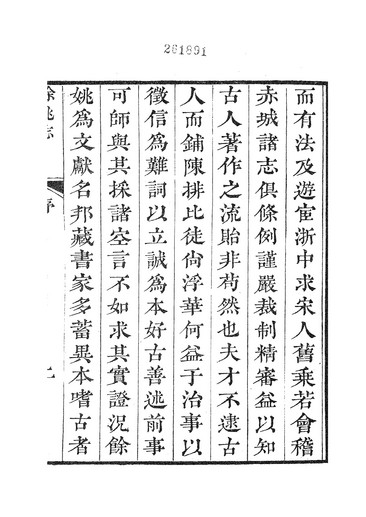 261891
而有法及遊宦浙中求宋人舊乘若會稽
赤城諸志俱條例謹嚴裁制精審益以知
古人著作之流貽非苟然也夫才不逮古
人而鋪陳排比徒尚浮華何益于治事以
徵信爲難詞以立誠爲本好古善述前事
可師與其採諸空言不如求其實證況餘
姚爲文獻名邦藏書家多蓄異本嗜古者
餘姚志
序